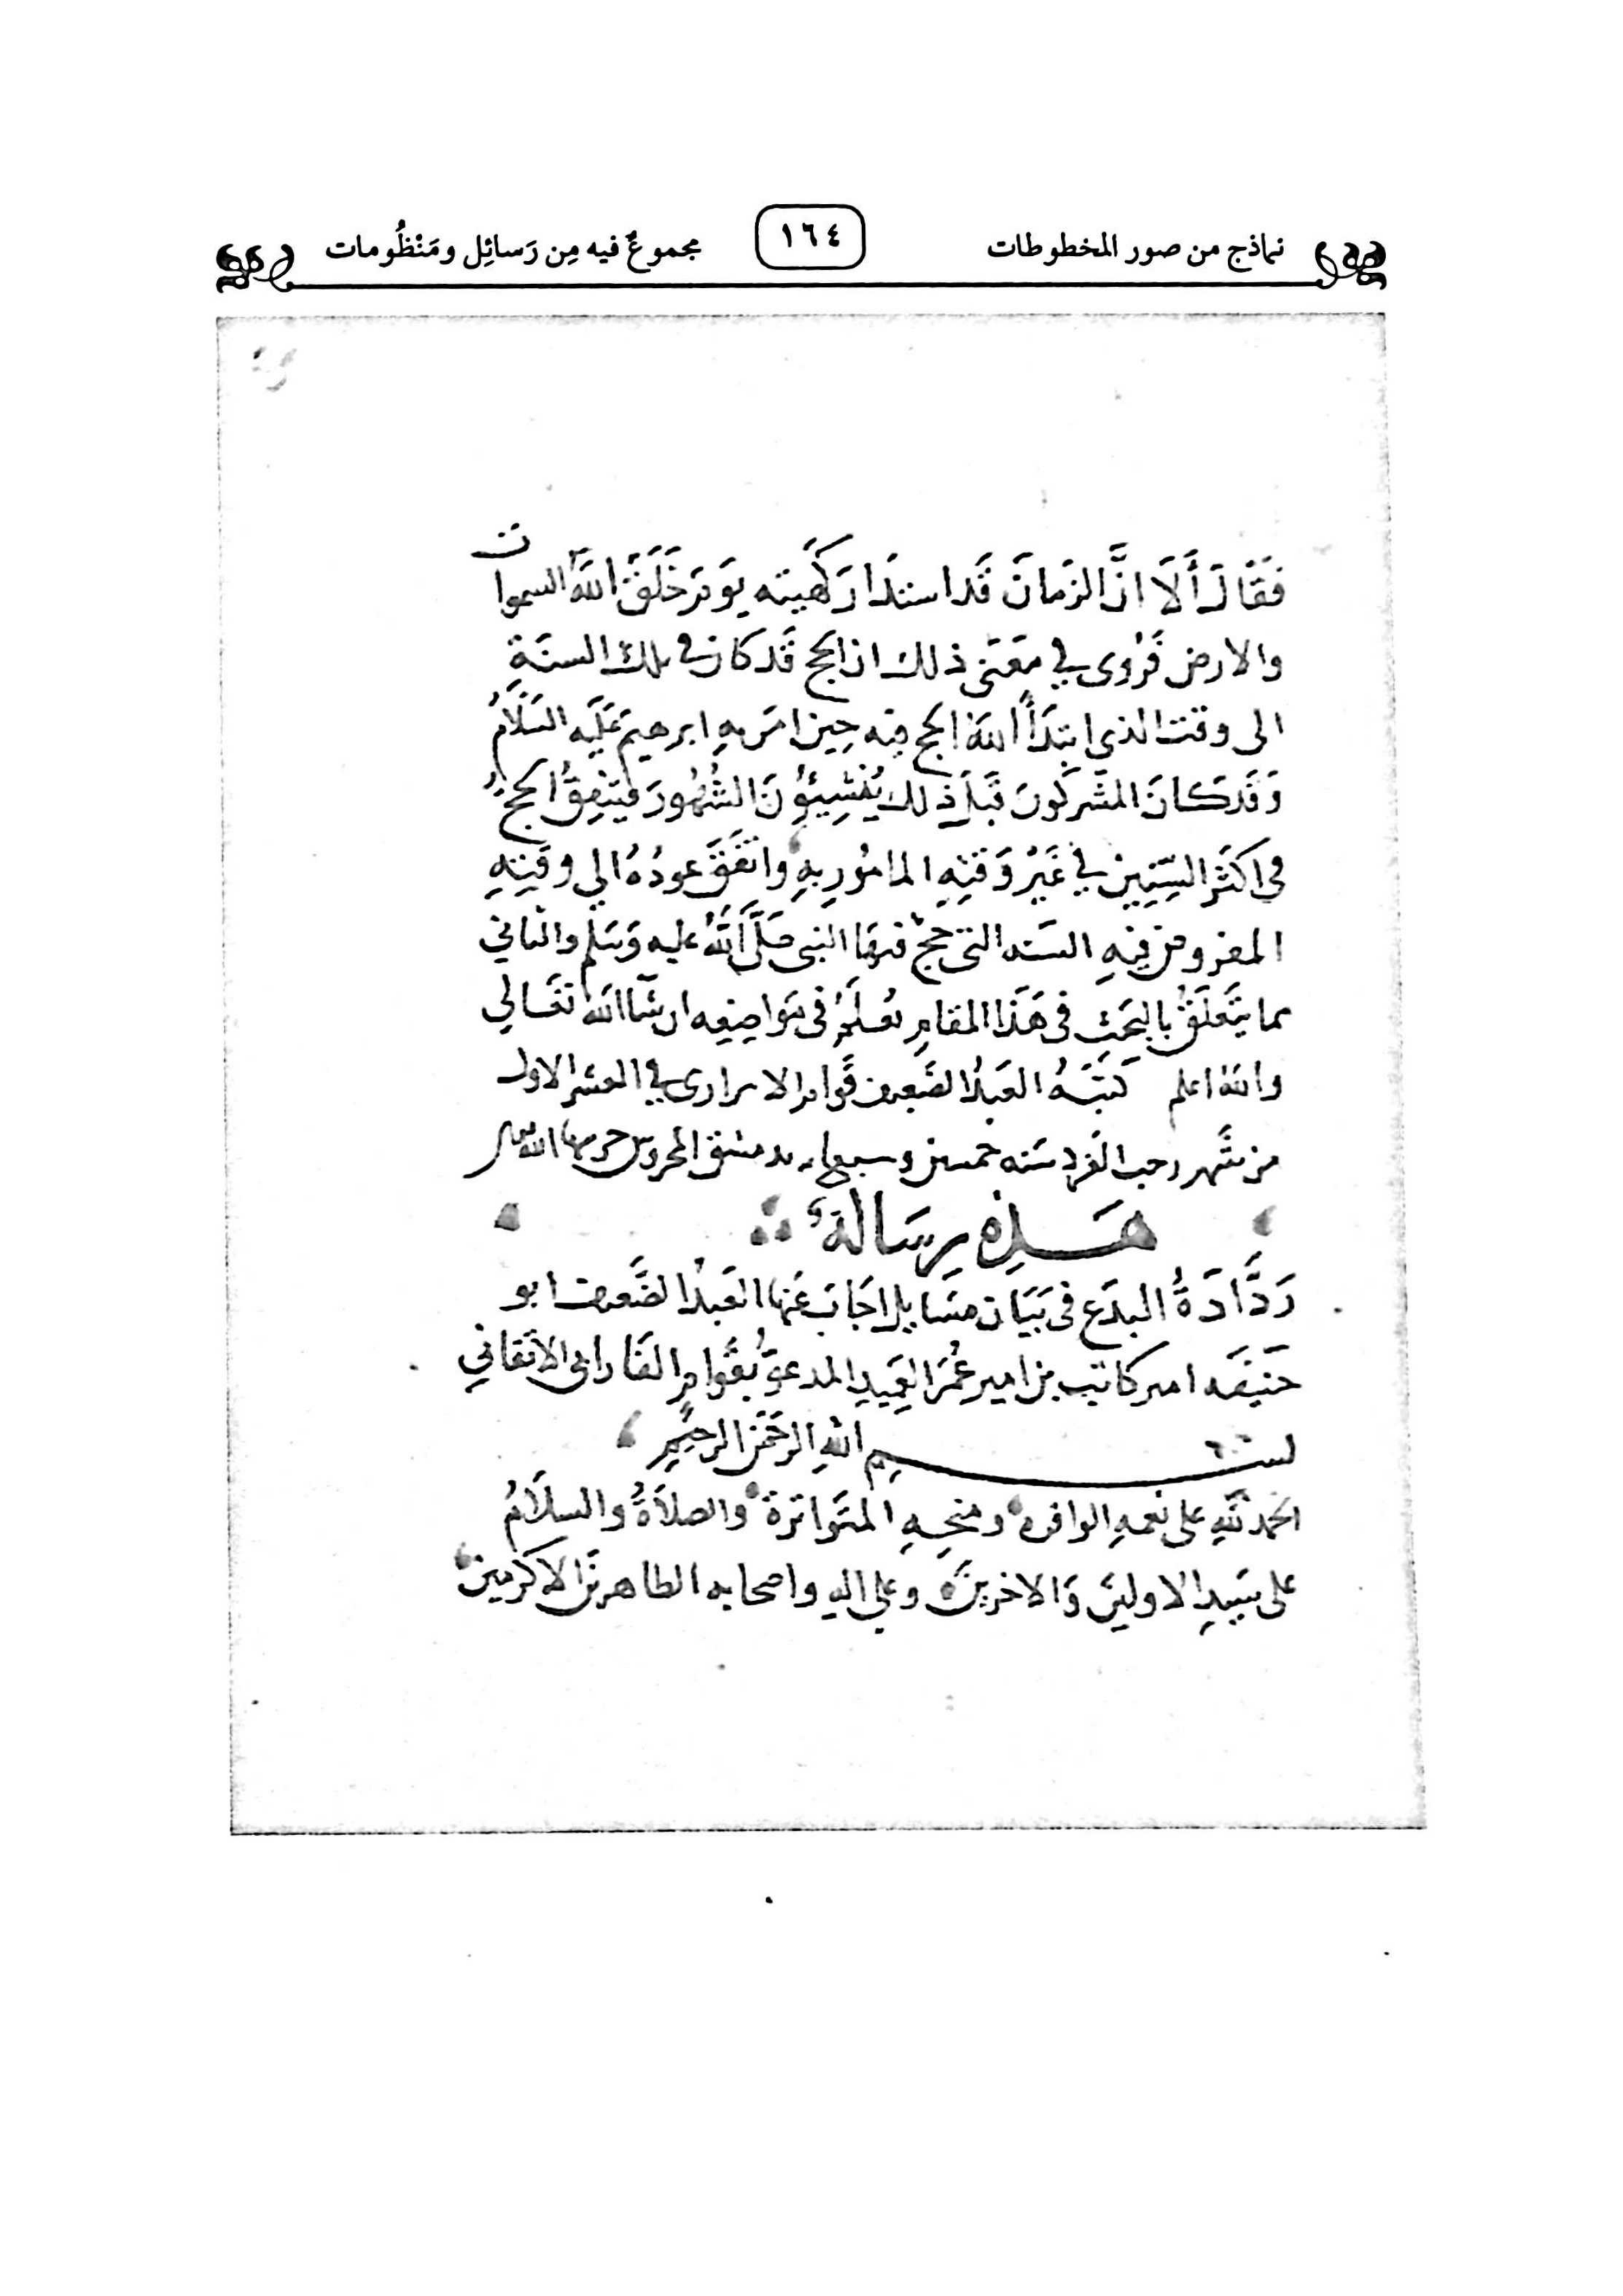 نماذج من صور المخطوطات
١٦٤
مجموعٌ فيه مِن رَسائِل ومَنْظُومات
فَقَالَ أَلَا انَّ الزمَانَ قَد استدَارَ كَهَيئته يَوم خَلَقَ اللهُ السموات
والارض فَروى في مَعَنى ذلك ان الحج قَد كان في تلك السنَةِ
الى وقت الذي ابتدَأَ اللهُ الحج فيه حِين امَر به ابرهيم عَلَيه السَلَامُ
وَقَد كانَ المشركونَ قبَل ذلك يُنْسِيئُونَ الشُهُورَ فيَتفِقُ الحج
في اكثَر السِّنِين في غَيْر وَقتِهِ المامُورِ بِهِ واتفَقَ عودُهُ الي وقتِهِ
المفروض فيهِ السَنه التي حجّ فيهَا النبي صَلَّى اللهُ عليه وَسَلم والباقي
مما يتَعَلقُ بالبَحث في هَذَا المقامِ يُعلَمُ في مَواضِعِه ان شَا الله تعَالي
والله اعلم كَتبَهُ العَبدُ الضَعِيف قَوام الاتراري في العشر الاول
من شَهر رجب الفَرد سَنه خمسين وسبعمايه بدمشق المحروس حرسها الله
هَـذِهِ رِسَالةٌ
رَدَّادَةُ البدَع في بَيَان مسَايل اجَابَ عَنهَا العَبدُ الضَّعيف ابو
حَنيفَه امير كاتِب بن امير عُمَر العَمِيد المدعوّ بقَوام الفَارابي الاتقاني
بسم اللهِ الرحَمن الرحيِمِ
الحمد للهِ على نِعمِهِ الوافره ومنحِهِ المتَواترة والصلاَةُ والسلَامُ
على سَيدِ الاولينَ وَالاخرينَ وعلي الهِ واصحابه الطاهرينَ الاكرَمين